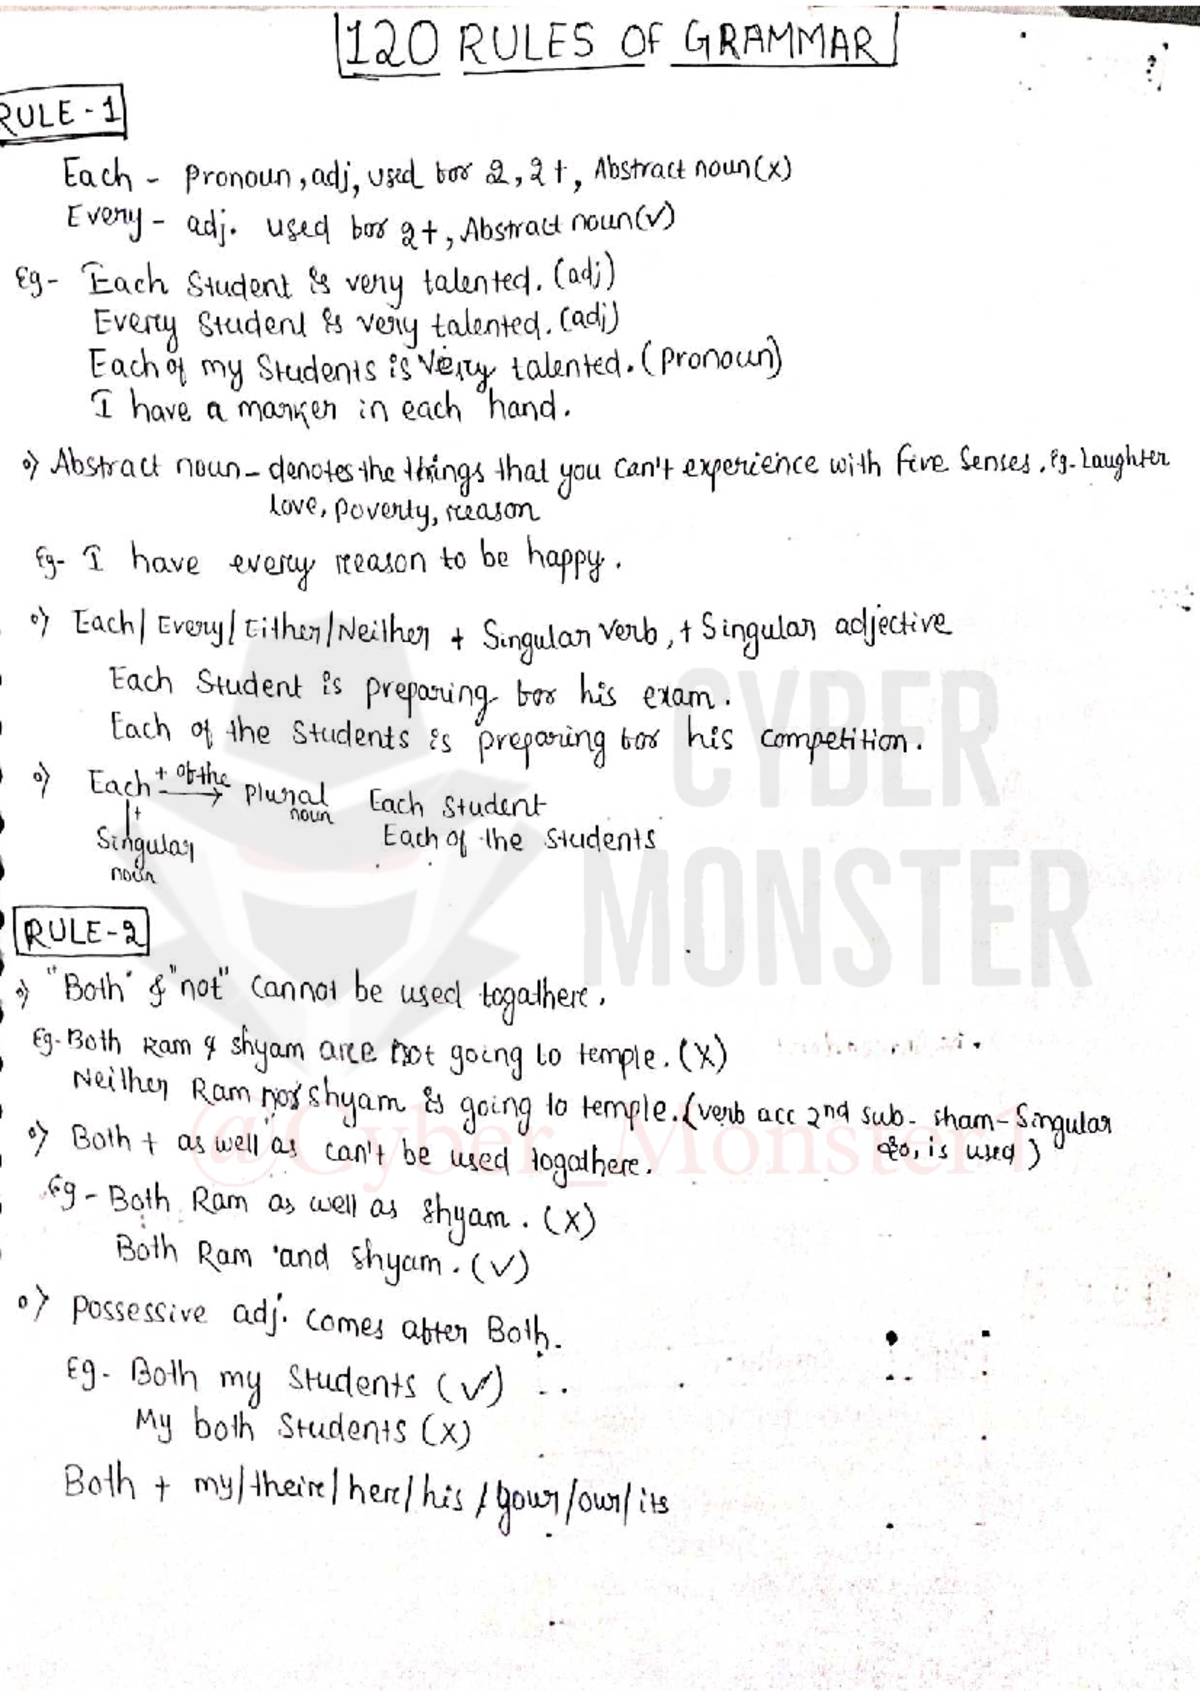 120 RULES OF GRAMMAR
RULE-1
Each - pronoun, adj, used for 2, 2+, Abstract noun(x)
Every - adj. used for 2+, Abstract noun(✓)
Eg- Each Student is very talented. (adj)
Every Student is very talented. (adj)
Each of my Students is very talented. (Pronoun)
I have a marker in each hand.
Abstract noun - denotes the things that you can't experience with five Senses. Eg- Laughter
love, poverty, reason
Eg- I have every reason to be happy.
Each/Every/Either/Neither + Singular verb, + Singular adjective
Each Student is preparing for his exam.
Each of the Students is preparing for his competition.
Each + of the → plural noun Each Student
+ Singular noun Each of the Students
RULE-2
"Both" & "not" cannot be used togathere.
Eg- Both Ram & shyam are not going to temple. (x)
Neither Ram nor shyam is going to temple. (verb acc 2nd sub- sham-Singular
so, is used)
Both + as well as can't be used togathere.
Eg- Both Ram as well as shyam. (x)
Both Ram and shyam. (✓)
possessive adj. comes after Both.
Eg- Both my Students (✓)
My both Students (x)
Both + my/theire/here/his/your/our/its
CYBER
MONSTER
@Cyber_Monster1